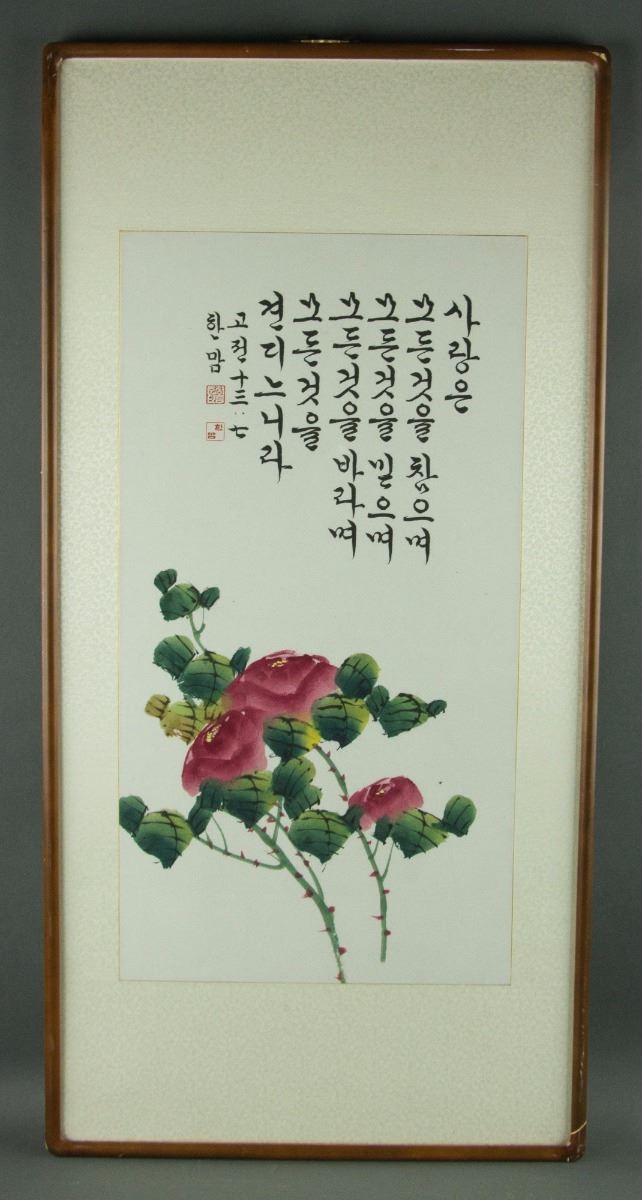 사랑은
모든것을 참으며
모든것을 믿으며
모든것을 바라며
모든것을
견디느니라
고전 十三:七
한맘